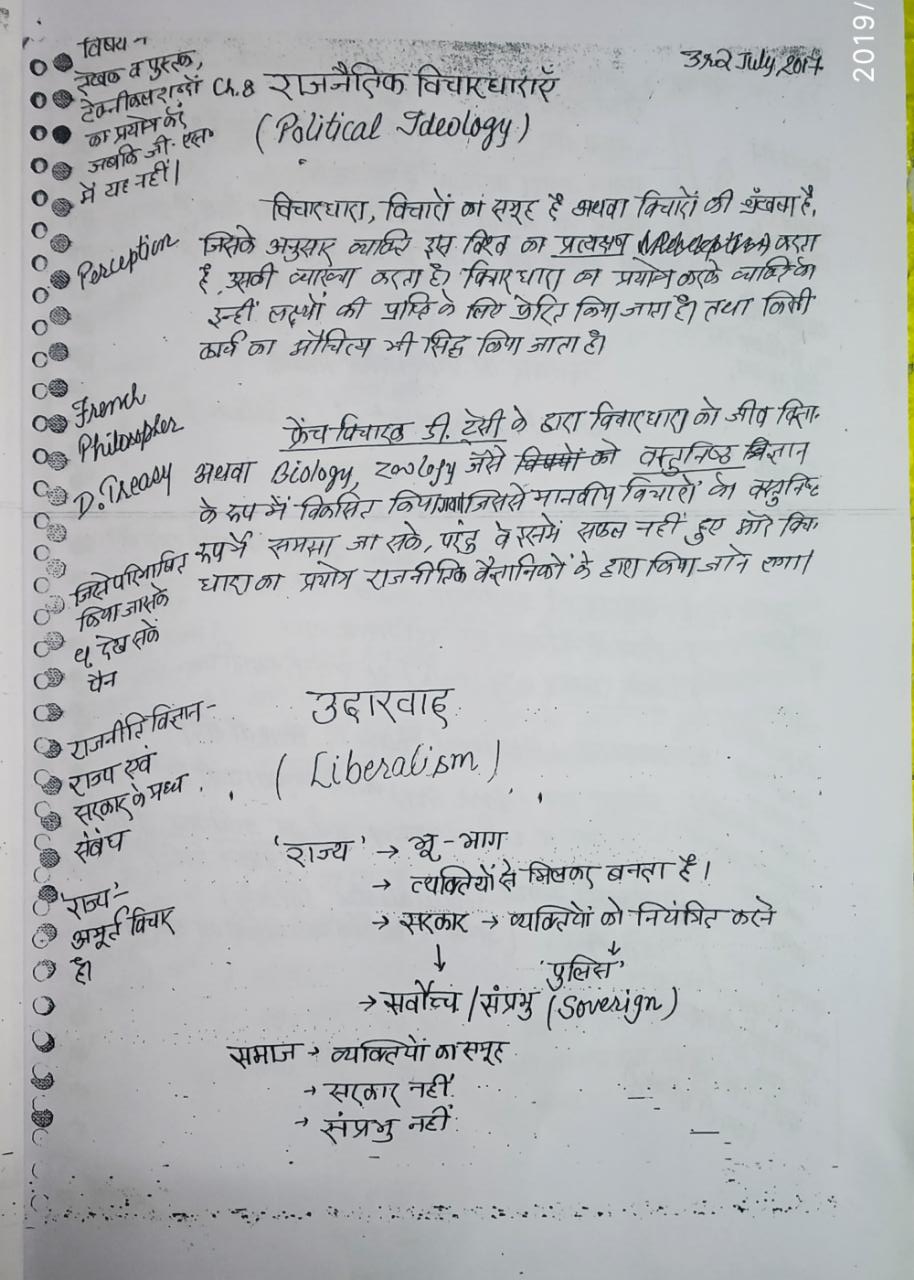 2019/
विषय -
लेखक व पुस्तक,
टेक्नीकल शब्दों
का प्रयोग करें
जबकि जी. एस.
में यह नहीं।
July, 2017
Ch. 8 राजनैतिक विचारधाराएँ
(Political Ideology)
विचारधारा, विचारों का समूह है अथवा विचारों की श्रृंखला है,
जिसके अनुसार व्यक्ति इस विश्व का प्रत्यक्षण (Perception) करता
Perception
है, उसकी व्याख्या करता है। विचारधारा का प्रयोग करके व्यक्ति को
इन्हीं लक्ष्यों की प्राप्ति के लिए प्रेरित किया जाता है। तथा किसी
कार्य का औचित्य भी सिद्ध किया जाता है।
French
Philospher
D. Treasy
फ्रेंच विचारक डी. ट्रेसी के द्वारा विचारधारा को जीव विज्ञा-
अथवा Biology, zoology जैसे विषयों को वस्तुनिष्ठ विज्ञान
के रूप में विकसित किया गया जिससे मानवीय विचारों को वस्तुनिष्ठ
रूप में समझा जा सके, परंतु वे इसमें सफल नहीं हुए और विचा-
धारा का प्रयोग राजनीतिक वैज्ञानिकों के द्वारा किया जाने लगा।
जिसे परिभाषित
किया जा सके
देख सकें
पैन
उदारवाद
(Liberalism)
राजनीति विज्ञान -
राज्य एवं
सरकार के मध्य
संबंध
'राज्य' → भू-भाग
→ व्यक्तियों से मिलकर बनता है।
→ सरकार → व्यक्तियों को नियंत्रित करने
↓ ↓
'पुलिस'
→ सर्वोच्च / संप्रभु (Soverign)
'राज्य' -
अमूर्त विचार
है।
समाज → व्यक्तियों का समूह
→ सरकार नहीं
→ संप्रभु नहीं